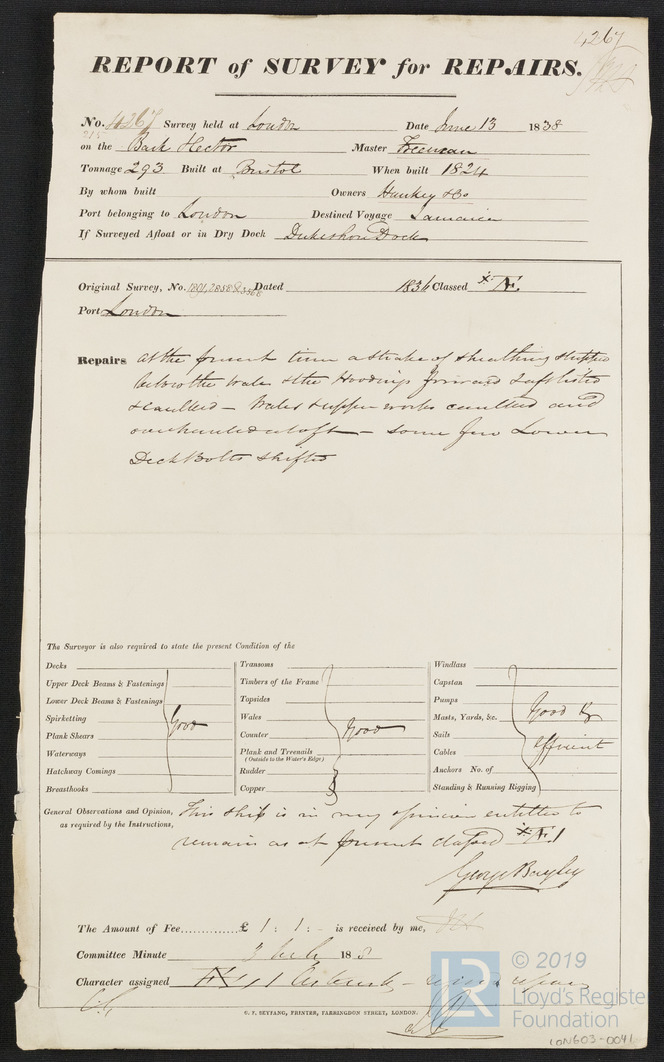 4267
REPORT of SURVEY for REPAIRS.
No. 4267 Survey held at London Date June 13 1838
215
on the Bark Hector Master Freeman
Tonnage 293 Built at Bristol When built 1824
By whom built Owners Hankey & Co
Port belonging to London Destined Voyage Jamaica
If Surveyed Afloat or in Dry Dock Dukeshore Dock
Original Survey, No. 1891, 2858 & 3568 Dated 1836 Classed
Port London
Repairs at the present time a strake of sheathing stripped
below the wales & the Hoodings forward & aft listed
& caulked – Wales & upper works caulked and
overhauled aloft – some few Lower
Deck Bolts shifted
The Surveyor is also required to state the present Condition of the
Decks
Upper Deck Beams & Fastenings
Lower Deck Beams & Fastenings
Spirketting
Plank Shears
Waterways
Hatchway Comings
Breasthooks
Good
Transoms
Timbers of the Frame
Topsides
Wales
Counter
Plank and Treenails
(Outside to the Water's Edge)
Rudder
Copper
Good
Windlass
Capstan
Pumps
Masts, Yards, &c.
Sails
Cables
Anchors No. of
Standing & Running Rigging
Good &
efficient
General Observations and Opinion, This ship is in my opinion entitled to
as required by the Instructions, remain as at present classed
George Bayley
The Amount of Fee............. £ 1 : 1 : - is received by me,
Committee Minute 3 July 183
Character assigned
C. F. SEYFANG, PRINTER, FARRINGDON STREET, LONDON.
LR
© 2019
Lloyd's Register
Foundation
LON603-0041